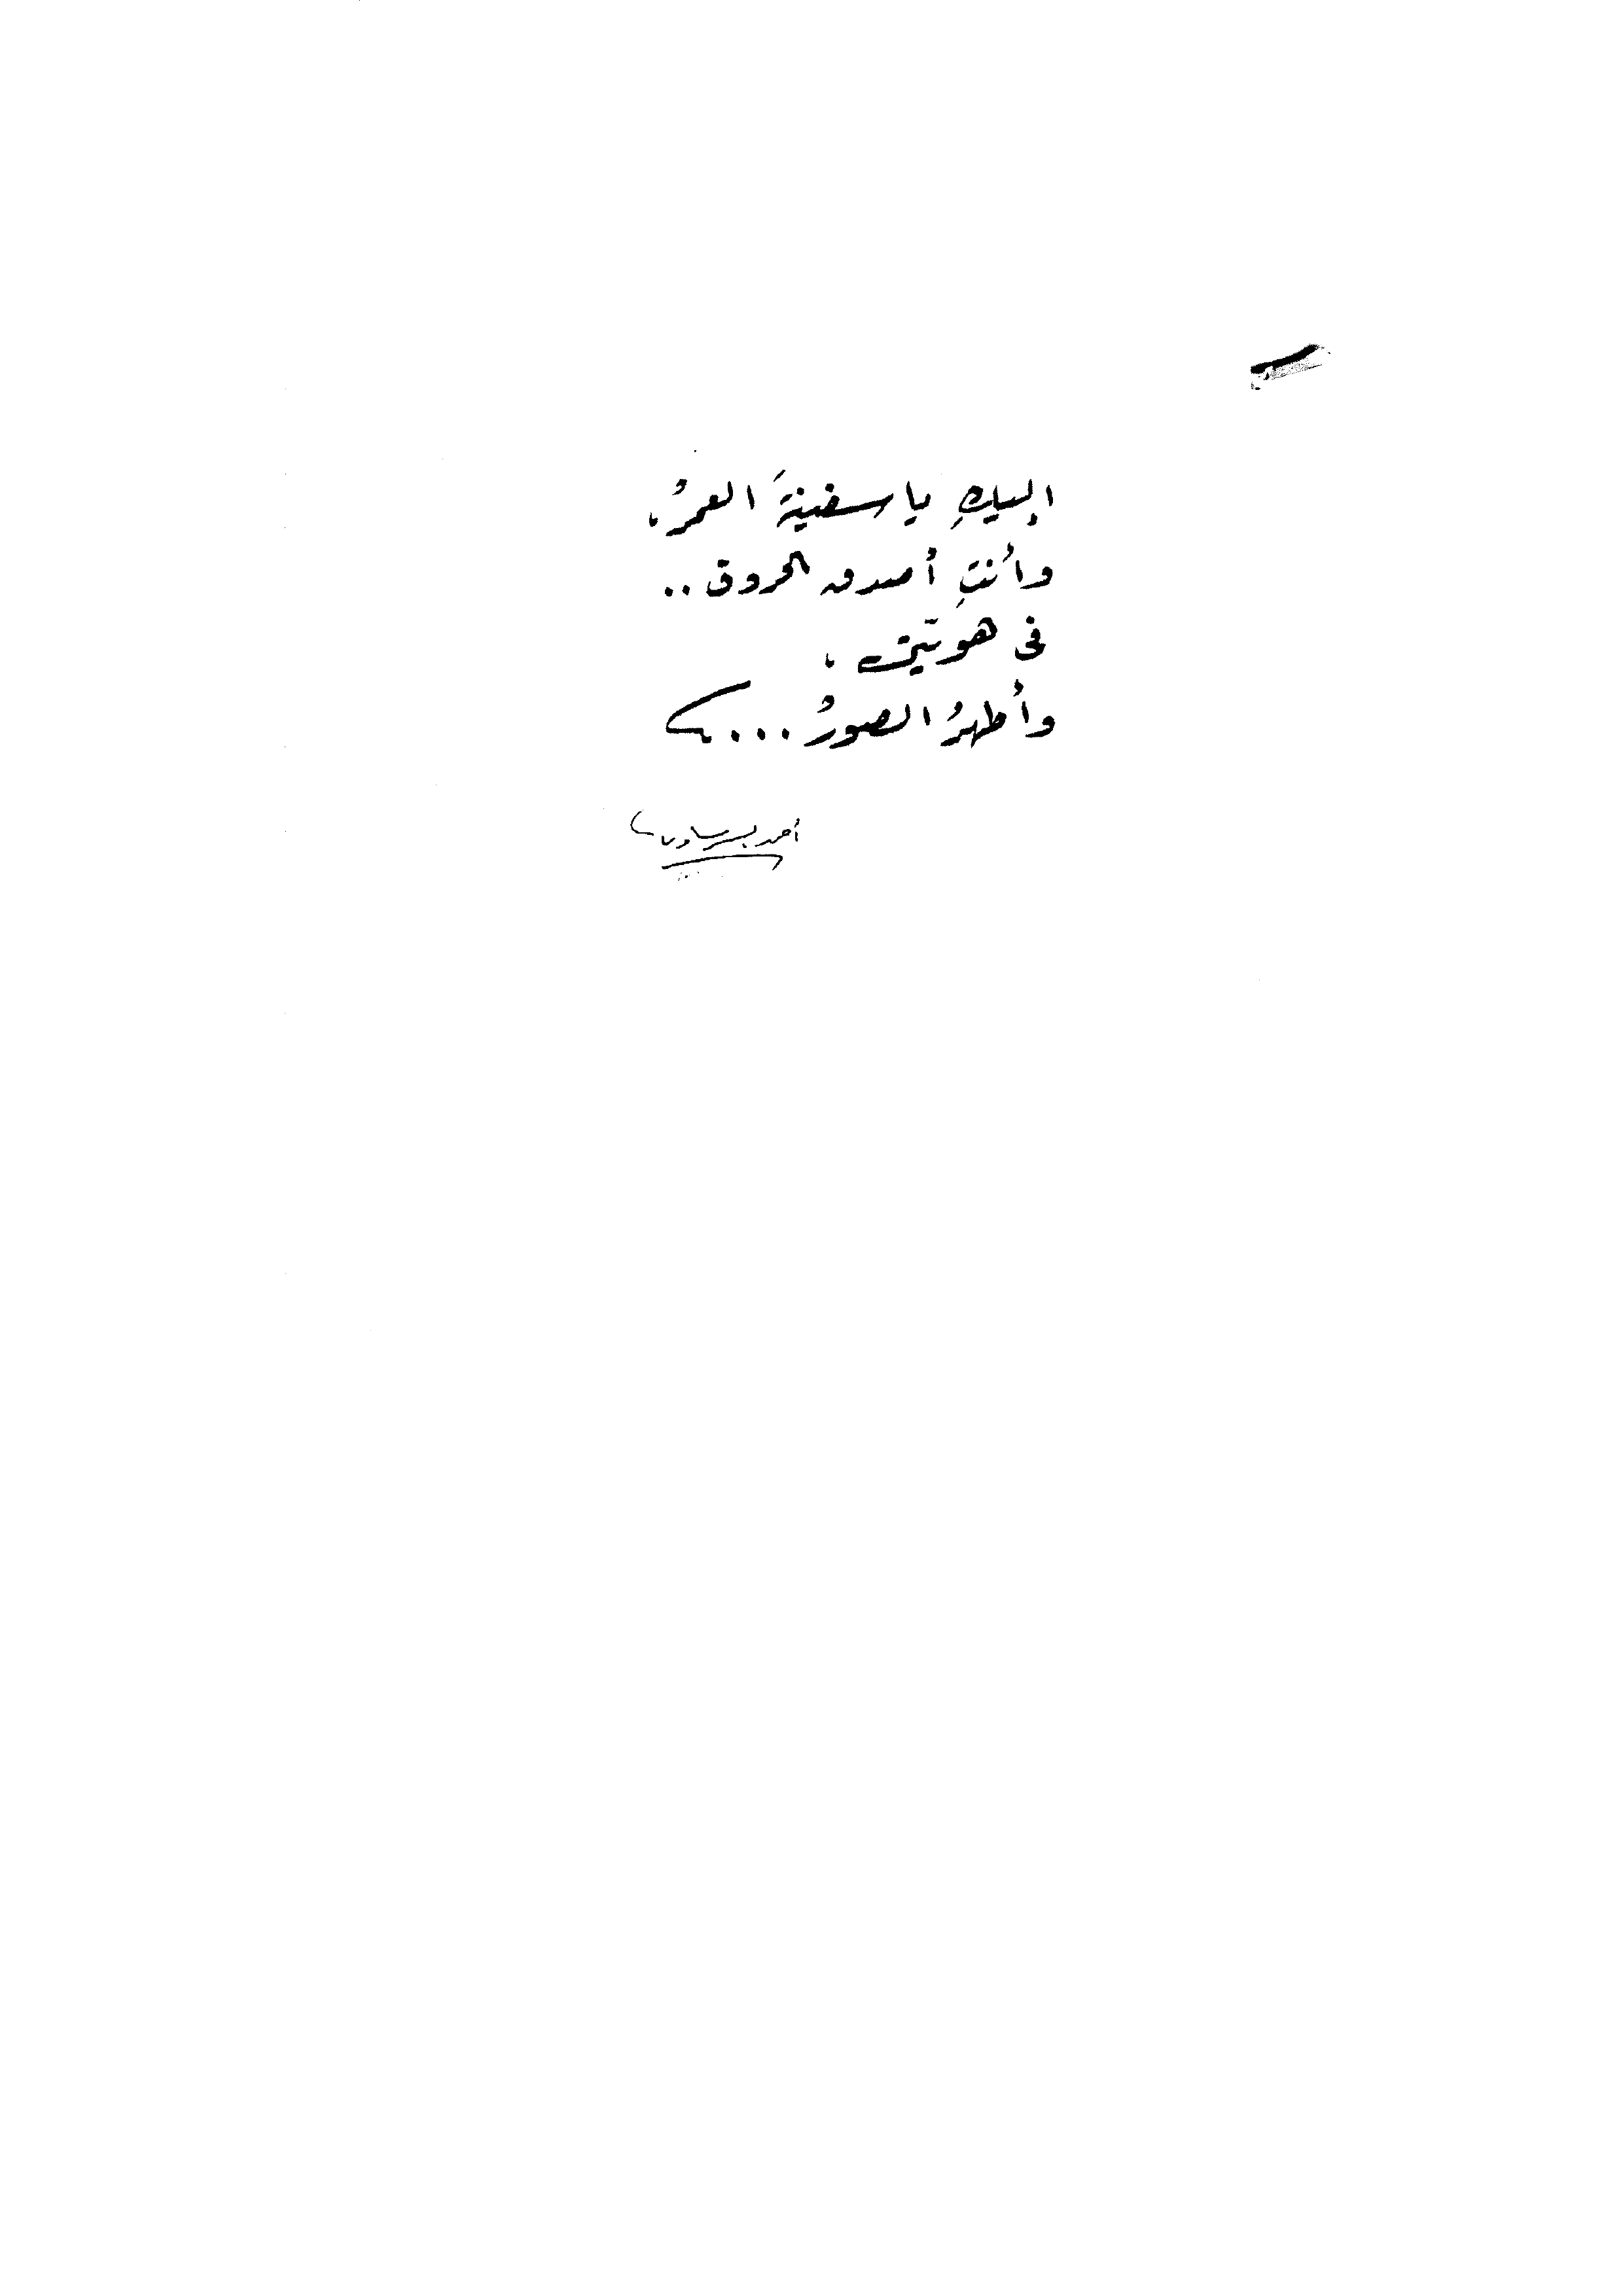 اليكِ يا سفينةَ العمرُ،
وأنتِ أصدق الحروف..
فى هويّتى،
وأطهرُ الصورُ....
أحمد